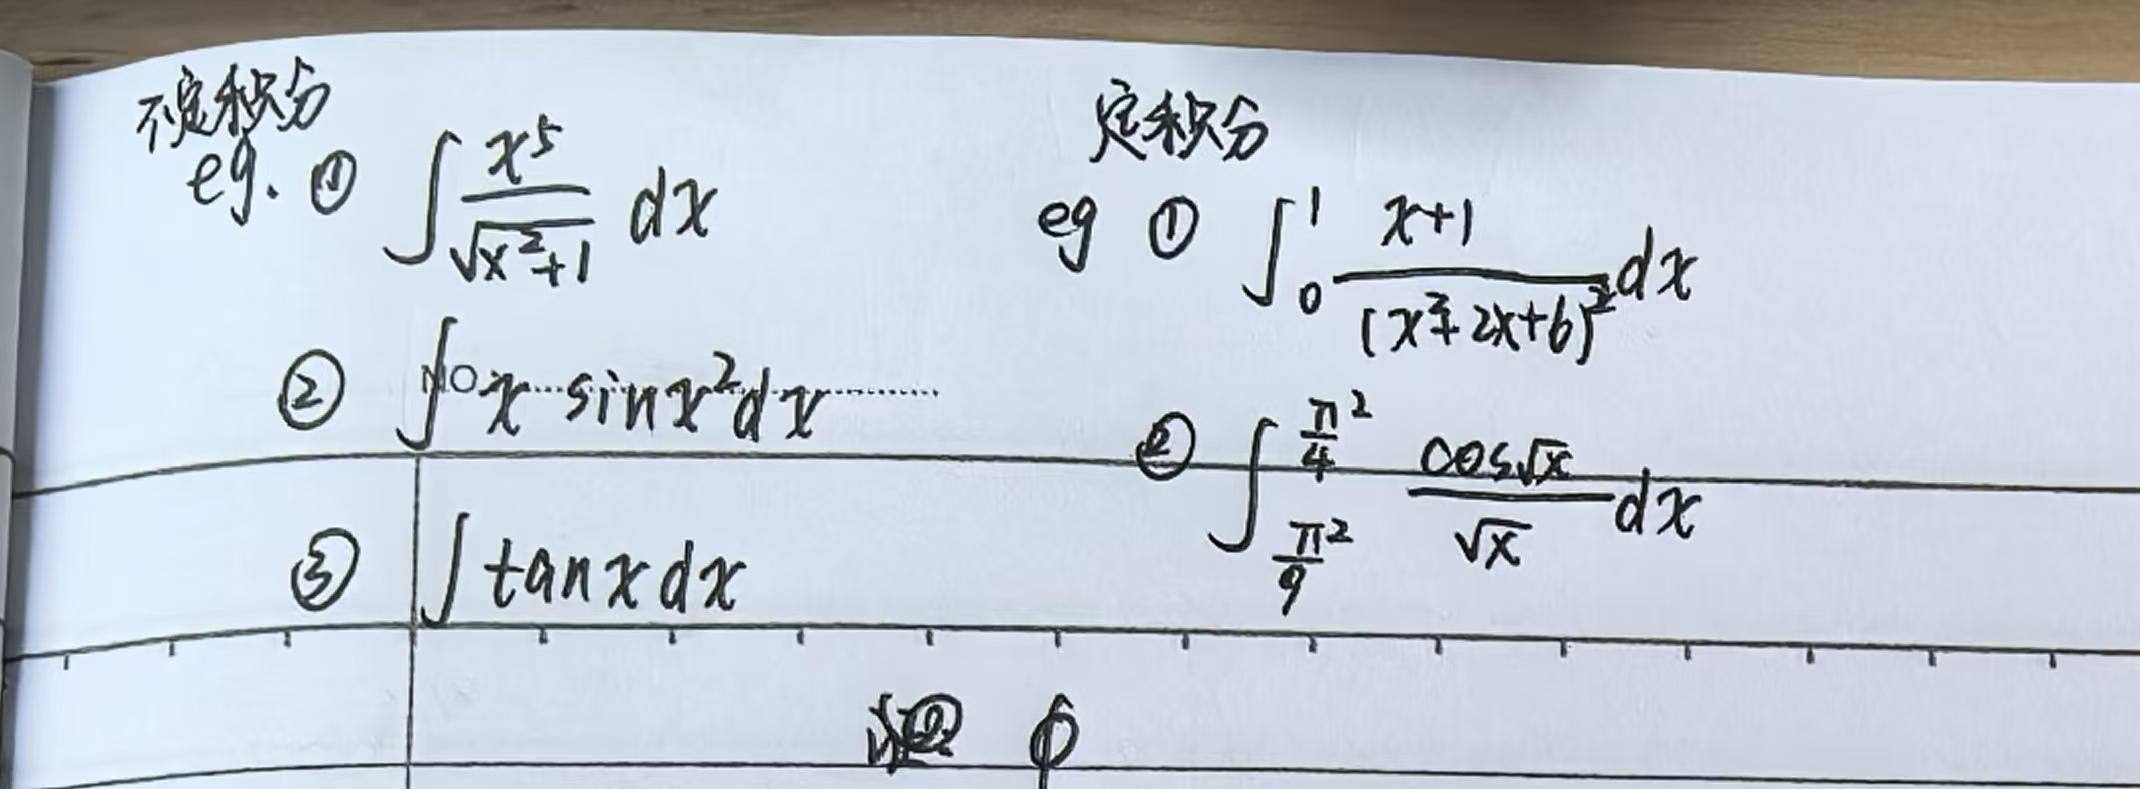 不定积分
eg. ① ∫ x⁵/√(x²+1) dx
② ∫ x sinx² dx
NO
③ ∫ tanx dx
定积分
eg ① ∫₀¹ (x+1)/(x²+2x+6)² dx
② ∫_{π²/9}^{π²/4} cos√x/√x dx